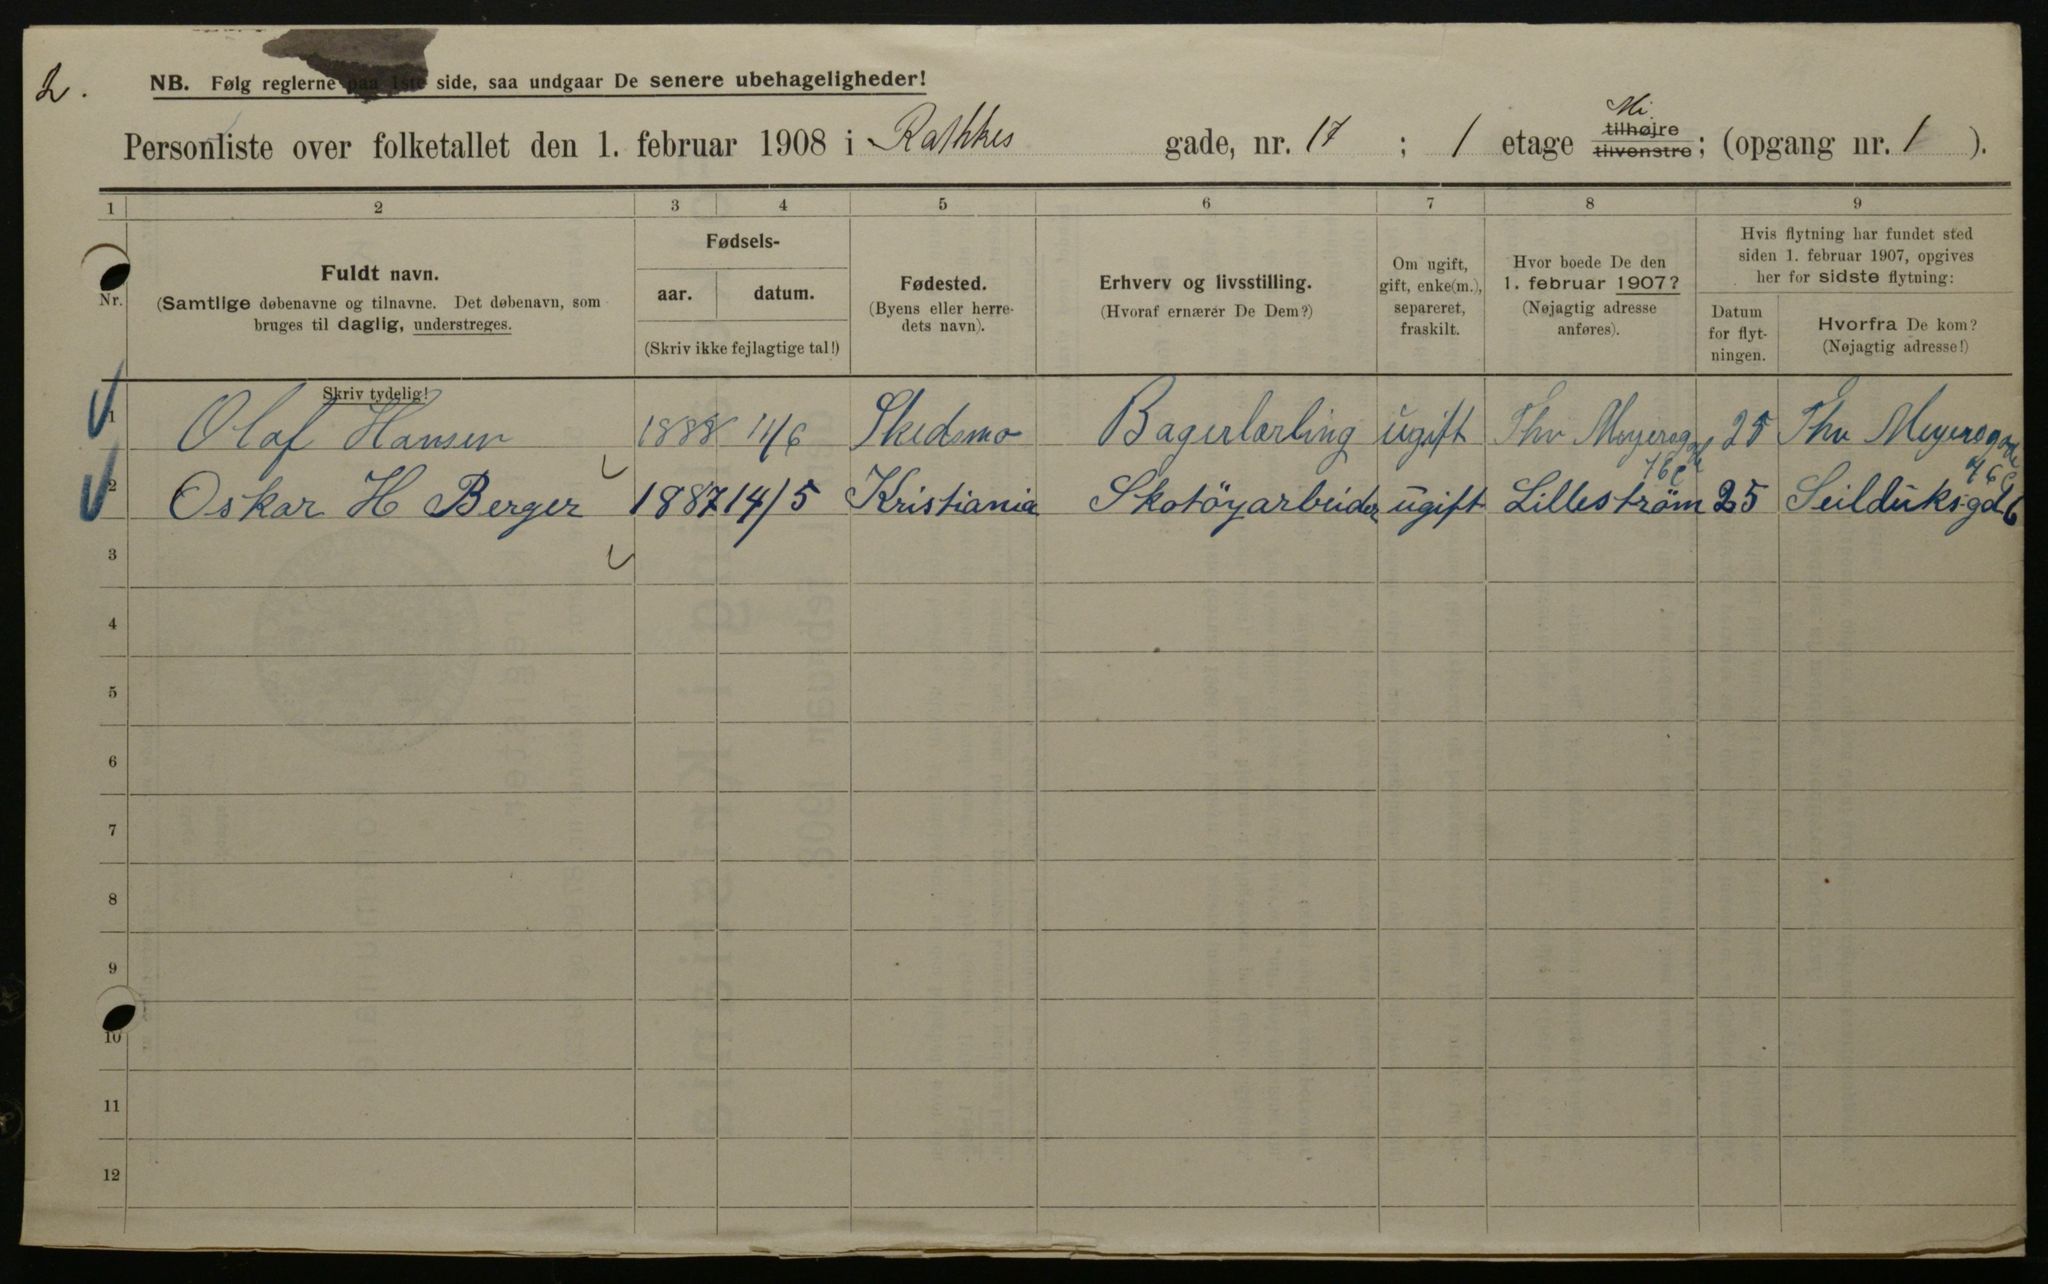 2.
NB. Følg reglerne paa 1ste side, saa undgaar De senere ubehageligheder!
Personliste over folketallet den 1. februar 1908 i Rathkes gade, nr. 17 ; 1 etage Mi. tilhøjre tilvenstre; (opgang nr. 1 ).
1 2 3 4 5 6 7 8 9
Nr.
Fuldt navn.
(Samtlige døbenavne og tilnavne. Det døbenavn, som
bruges til daglig, understreges.
Skriv tydelig!
Fødsels-
aar. datum.
(Skriv ikke fejlagtige tal!)
Fødested.
(Byens eller herre-
dets navn).
Erhverv og livsstilling.
(Hvoraf ernærer De Dem?)
Om ugift,
gift, enke(m.),
separeret,
fraskilt.
Hvor boede De den
1. februar 1907?
(Nøjagtig adresse
anføres).
Hvis flytning har fundet sted
siden 1. februar 1907, opgives
her for sidste flytning:
Datum
for flyt-
ningen.
Hvorfra De kom?
(Nøjagtig adresse!)
1 Olaf Hansen 1888 11/6 Skedsmo Bagerlærling ugift Thv Meyersgade 25 Thv Meyersgade
2 Oskar H Berger 1887 14/5 Kristiania Skotöyarbeider ugift Lilleström 25 Seilduksgd
3
4
5
6
7
8
9
10
11
12